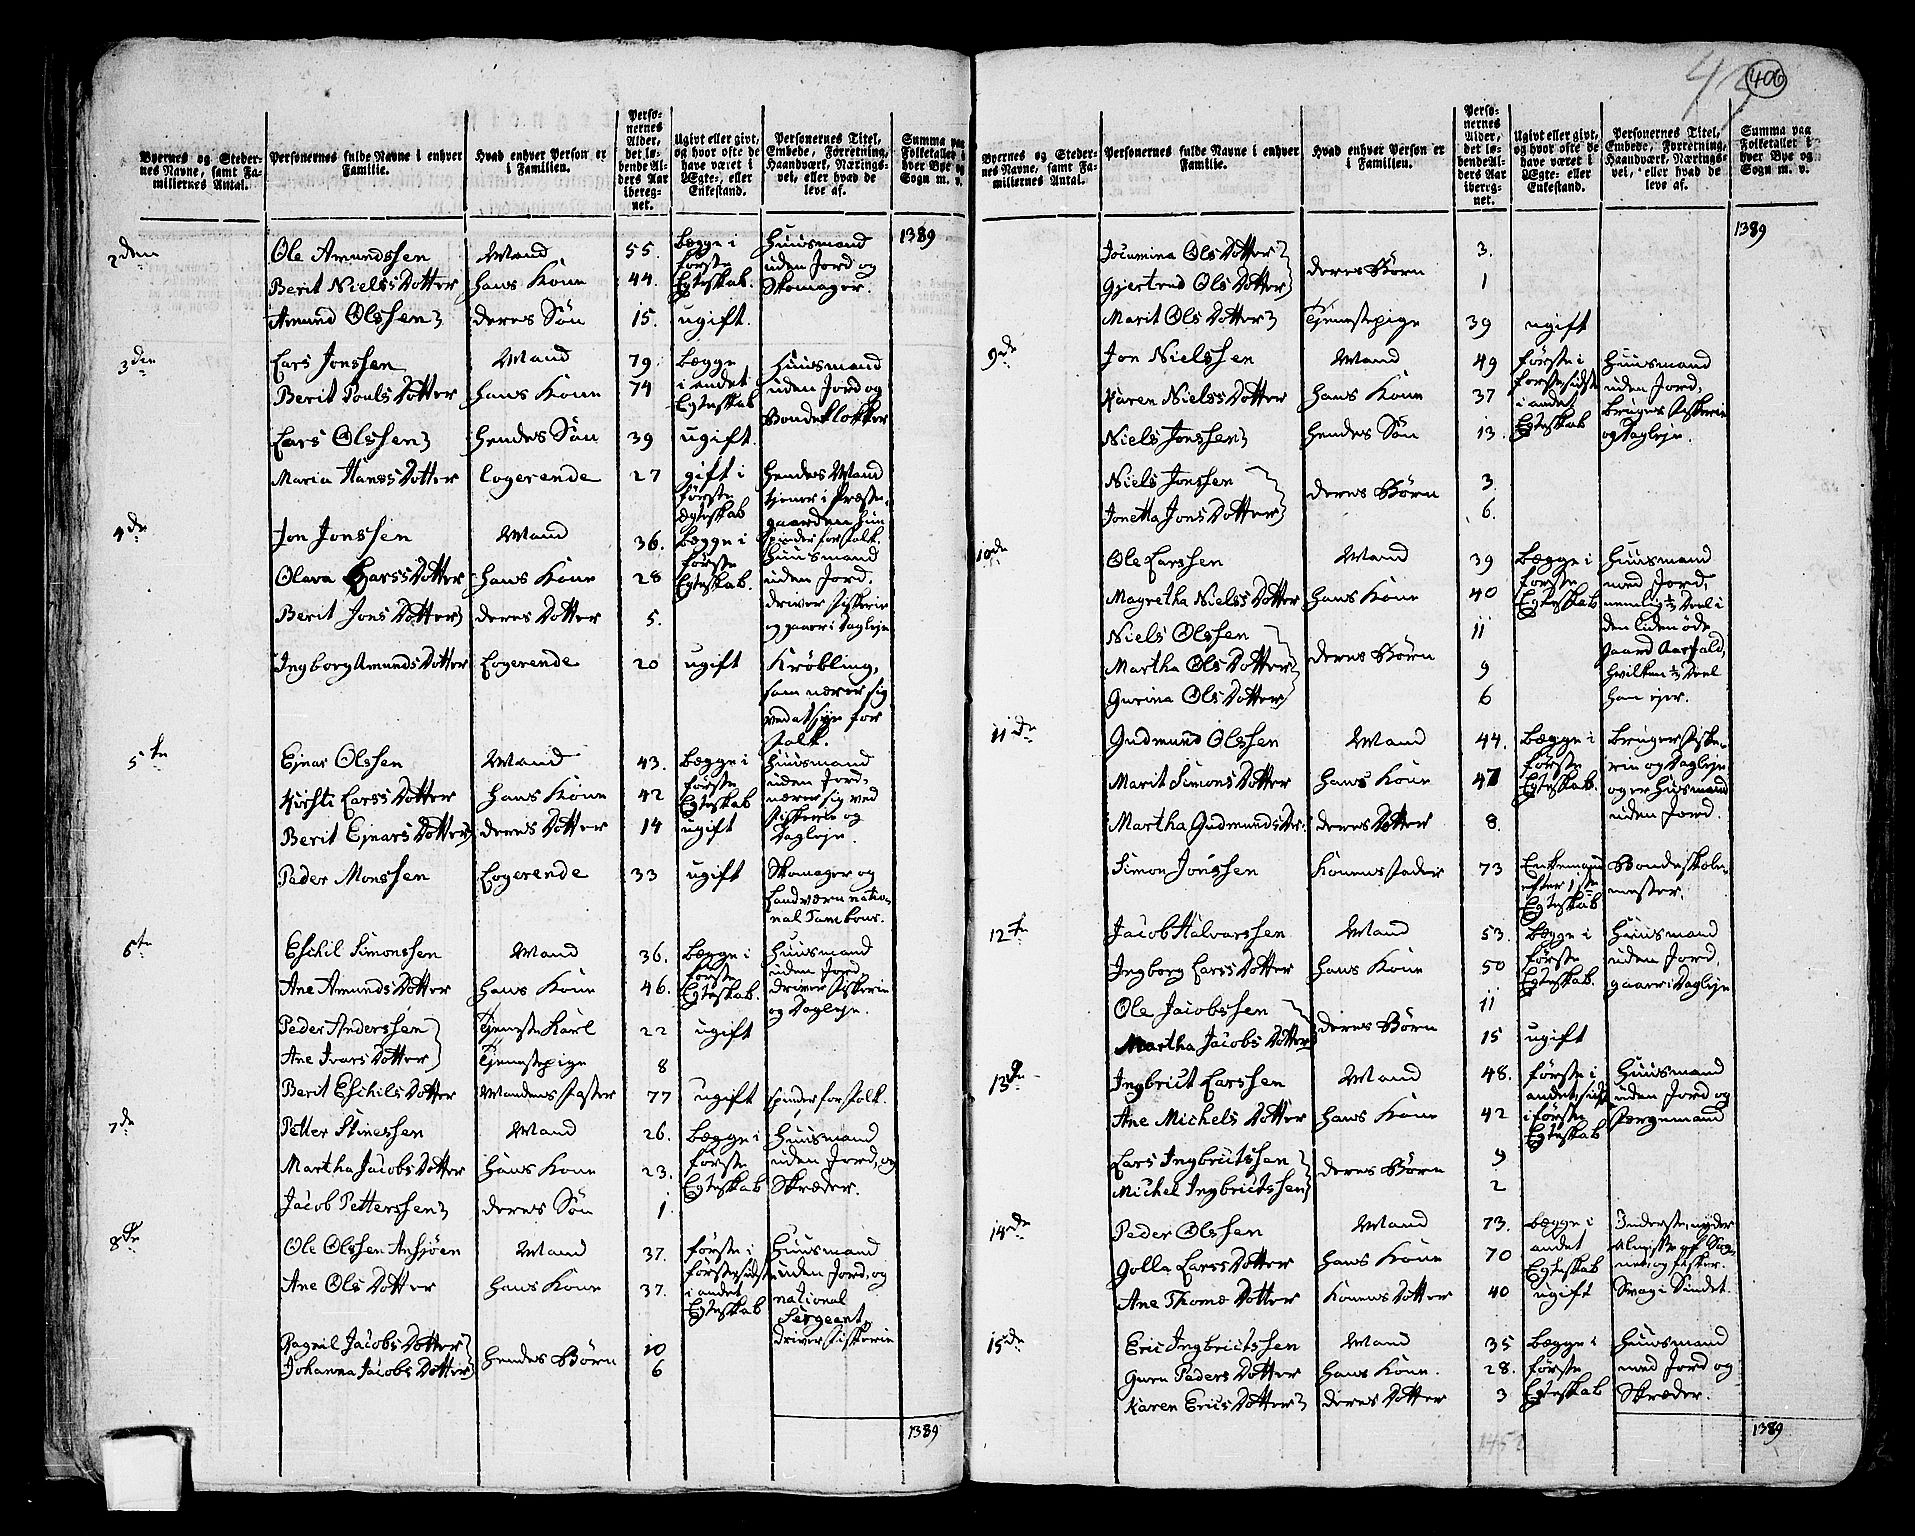 Byernes og Steder-
nes Navne, samt Fa-
miliernes Antal.
Personernes fulde Navne i enhver
Familie.
Hvad enhver Person er
i Familien.
Perso-
nernes
Alder,
det lø-
bende Al-
ders Aar
iberegnet.
Ugivt eller givt,
og hvor ofte de
have været i
Ægte- eller
Enkestand.
Personernes Titel,
Embede, Forretning,
Haandværk, Nærings-
vei, eller hvad de
leve af.
Summa paa
Folketallet i
hver Bye og
Sogn m. v.
1389
2den Ole Amundssen Mand 55. Begge i første Egteskab. Huusmand uden Jord og Skomager.
Berit NielssDotter hans Kone 44.
Amund Olssen deres Søn 15. ugift.
3die Lars Jonssen Mand 79 Begge i andet Egteskab Huusmand uden Jord og Bondeklokker
Berit PoulsDotter hans Kone 74
Lars Olssen hendes Søn 39 ugift.
Maria HanssDotter Logerende 27 gift i første Egteskab hendes Mand tjener i Præste-gaarden hun spinder for Folk.
4de Jon Jonssen Mand 36. Begge i første Egteskab. Huusmand uden Jord. driver Fiskerie og gaar i Dagleje
Olava LarssDotter hans Kone 28
Berit JonsDotter deres Dotter 5.
Ingborg AmundsDotter Logerende 20 ugift Krøbling, som nærer sig ved at sye for Folk.
5te Ejnar Olssen Mand 43. Begge i første Egteskab Huusmand uden Jord, nærer sig ved Fiskerie og Dagleje.
Kirsti LarssDotter hans Kone 42
Berit EjnarsDotter deres Dotter 14 ugift
Peder Monssen Logerende 33 ugift Skomager og Landværn national Tambour.
6te Eschil Simonssen Mand 36. Begge i første Egteskab. Huusmand uden Jord driver Fiskerie og Dagleje.
Ane AmundsDotter hans Kone 46.
Peder Anderssen Tjeneste Karl 22 ugift
Ane IvarsDotter Tjenestepige 8
Berit EschilsDotter Mandens Faster 77 ugift spinder for Folk.
7de Petter Stinessen Mand 26. Begge i første Egteskab Huusmand uden Jord, og Skræder.
Martha JacobsDotter hans Kone 23.
Jacob Petterssen deres Søn 1.
8de Ole Olssen Ansjøen Mand 37. første i første, sidste i andet Egteskab Huusmand uden Jord, og national Sergeant, driver Fiskerie
Ane OlsDotter hans Kone 37.
Ragnil JacobsDotter hendes Børn 10
Johanna JacobsDotter 6
1389
406
Byernes og Steder-
nes Navne, samt Fa-
miliernes Antal.
Personernes fulde Navne i enhver
Familie.
Hvad enhver Person er
i Familien.
Perso-
nernes
Alder,
det lø-
bende Al-
ders Aar
iberegnet.
Ugivt eller givt,
og hvor ofte de
have været i
Ægte- eller
Enkestand.
Personernes Titel,
Embede, Forretning,
Haandværk, Nærings-
vei, eller hvad de
leve af.
Summa paa
Folketallet i
hver Bye og
Sogn m. v.
1389
Jocumina OlsDotter deres Børn 3.
Gjertrud OlsDotter 1
Marit OlsDotter Tjenestepige 39 ugift
9de Jon Nielssen Mand 49 første i første, sidste i andet Egteskab Huusmand uden Jord, bruger Fiskerie og Dagleje.
Karen NielssDotter hans Kone 37
Niels Jonssen hendes Søn 13.
Niels Jonssen deres Børn 3.
Jonetta JonsDotter 6.
10de Ole Larssen Mand 39 Begge i første Egteskab Huusmand med Jord, nemlig ½ Deel i den liden øde Gaard Aarfald, hvilken ½ Deel han ejer.
Magretha NielssDotter hans Kone 40
Niels Olssen deres Børn 11
Martha OlsDotter 9
Gurina OlsDotter 6
11de Gudmund Olssen Mand 44. Begge i første Egteskab. bruger Fiskerie og Dagleje og er Huusmand uden Jord.
Marit SimonsDotter hans Kone 47
Martha GudmundsDr: deres Dotter 8.
Simon Jonssen Konens Fader 73 Enkemand efter 1ste Egteskab Bondeskolemester.
12te Jacob Halvarssen Mand 53. Begge i første Egteskab. Huusmand uden Jord, gaar i Dagleje
Ingborg LarssDotter hans Kone 50
Ole Jacobssen deres Børn 11
Martha JacobsDotter 15 ugift
13de Ingbrict Larssen Mand 48. første i andet, sidste i første Egteskab Huusmand uden Jord og Færgemand
Ane MichelsDotter hans Kone 42
Lars Ingbrictssen deres Børn 9
Michel Ingbrictssen 2
14de Peder Olssen Mand 73. Begge i andet Egteskab Inderste, nyder Almisse af Sognet, og fisker.
Golla LarssDotter hans Kone 70
Ane ThomæDotter Konens Dotter 40 ugift Svag i Sindet.
15de Eric Ingbrictssen Mand 35 Begge i første Egteskab Huusmand med Jord og Skræder.
Guru PedersDotter hans Kone. 28.
Karen EricsDotter deres Dotter 3
1389